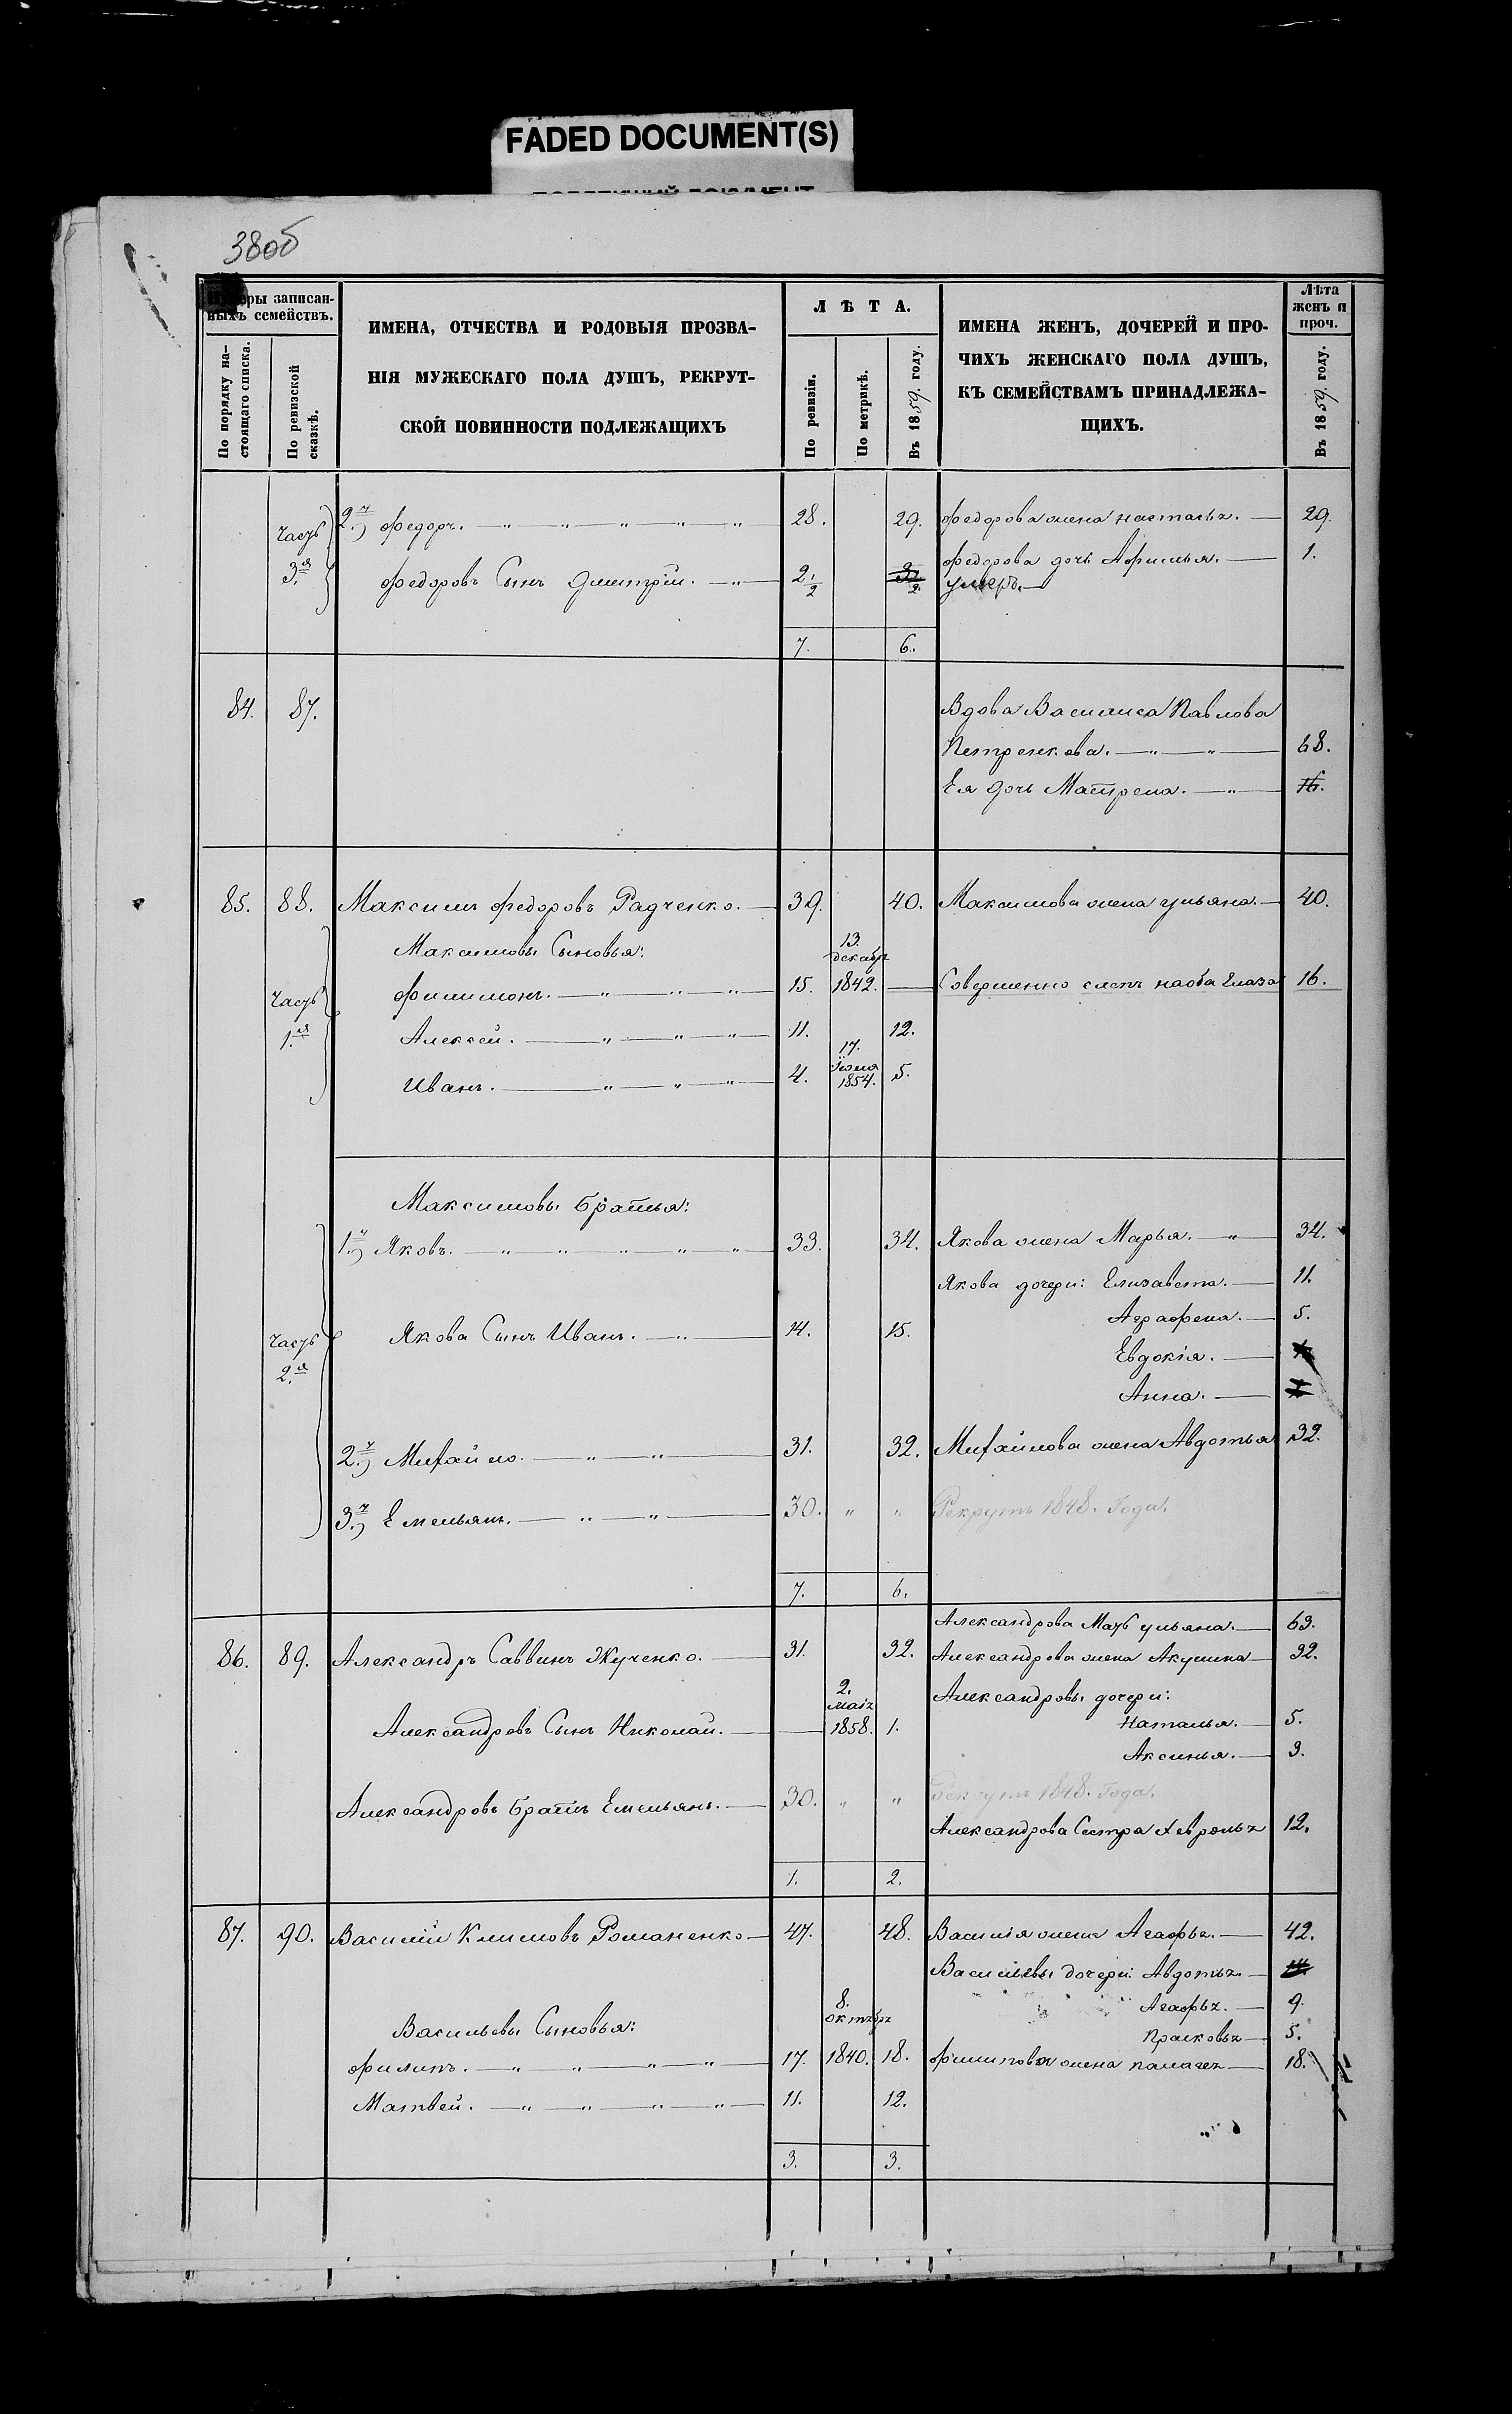 FADED DOCUMENT(S)
38об
ры записан-
ныхъ семействъ.
По порядку на-
стоящаго списка.
По ревизской
сказкѣ.
ИМЕНА, ОТЧЕСТВА И РОДОВЫЯ ПРОЗВА-
НІЯ МУЖЕСКАГО ПОЛА ДУШЪ, РЕКРУТ-
СКОЙ ПОВИННОСТИ ПОДЛЕЖАЩИХЪ
ЛѢТА.
По ревизіи.
По метрикѣ.
Въ 1859. году.
ИМЕНА ЖЕНЪ, ДОЧЕРЕЙ И ПРО-
ЧИХЪ ЖЕНСКАГО ПОЛА ДУШЪ,
КЪ СЕМЕЙСТВАМЪ ПРИНАДЛЕЖА-
ЩИХЪ.
Лѣта
женъ и
проч.
Въ 1859. году.
Часть 3.я
2.й) Федоръ. 28. 29. Федорова жена Настасья. 29.
Федорова дочь Афимья. 1.
Федоровъ Сынъ Дмитрій. 2 1/2 умеръ.
7. 6.
84. 87. Вдова Василиса Павлова
Петренкова. 68.
Ея дочь Матрена. 16.
85. 88. Максимъ Федоровъ Радченко. 39. 40. Максимова жена Ульяна. 40.
Максимовы Сыновья:
Часть 1.я
Филимонъ. 15. 13. декабр 1842. Совершенно слепъ на оба глаза 16.
Алексей. 11. 12.
Иванъ. 4. 17. Іюля 1854. 5.
Максимовы Братья:
1.й) Яковъ. 33. 34. Якова жена Марья. 34.
Якова дочери: Елизавета. 11.
Часть 2.я
Якова Сынъ Иванъ. 14. 15. Аграфена. 5.
Евдокія.
Анна.
2.й) Михайло. 31. 32. Михайлова жена Авдотья 32.
3.й) Емельянъ. 30. " " Рекрутъ 1848. Года.
7. 6.
Александрова Мать Ульяна. 63.
86. 89. Александръ Саввинъ Жученко. 31. 32. Александрова жена Акулина 32.
Александровы дочери:
Александровъ Сынъ Николай. 2. маія 1858. 1. Наталья. 5.
Аксинья. 3.
Александровъ Братъ Емельянъ. 30. " " Рекрутъ 1848. Года.
Александрова Сестра Хевронья 12.
1. 2.
87. 90. Василий Климовъ Романенко 47. 48. Василія жена Агафья. 42.
Васильевы дочери: Авдотья.
Агафья. 9.
Васильевы Сыновья:
Прасковья 5.
Филипъ. 17. 8. октября 1840. 18. Филипова жена Палагея 18.
Матвей. 11. 12.
3. 3.